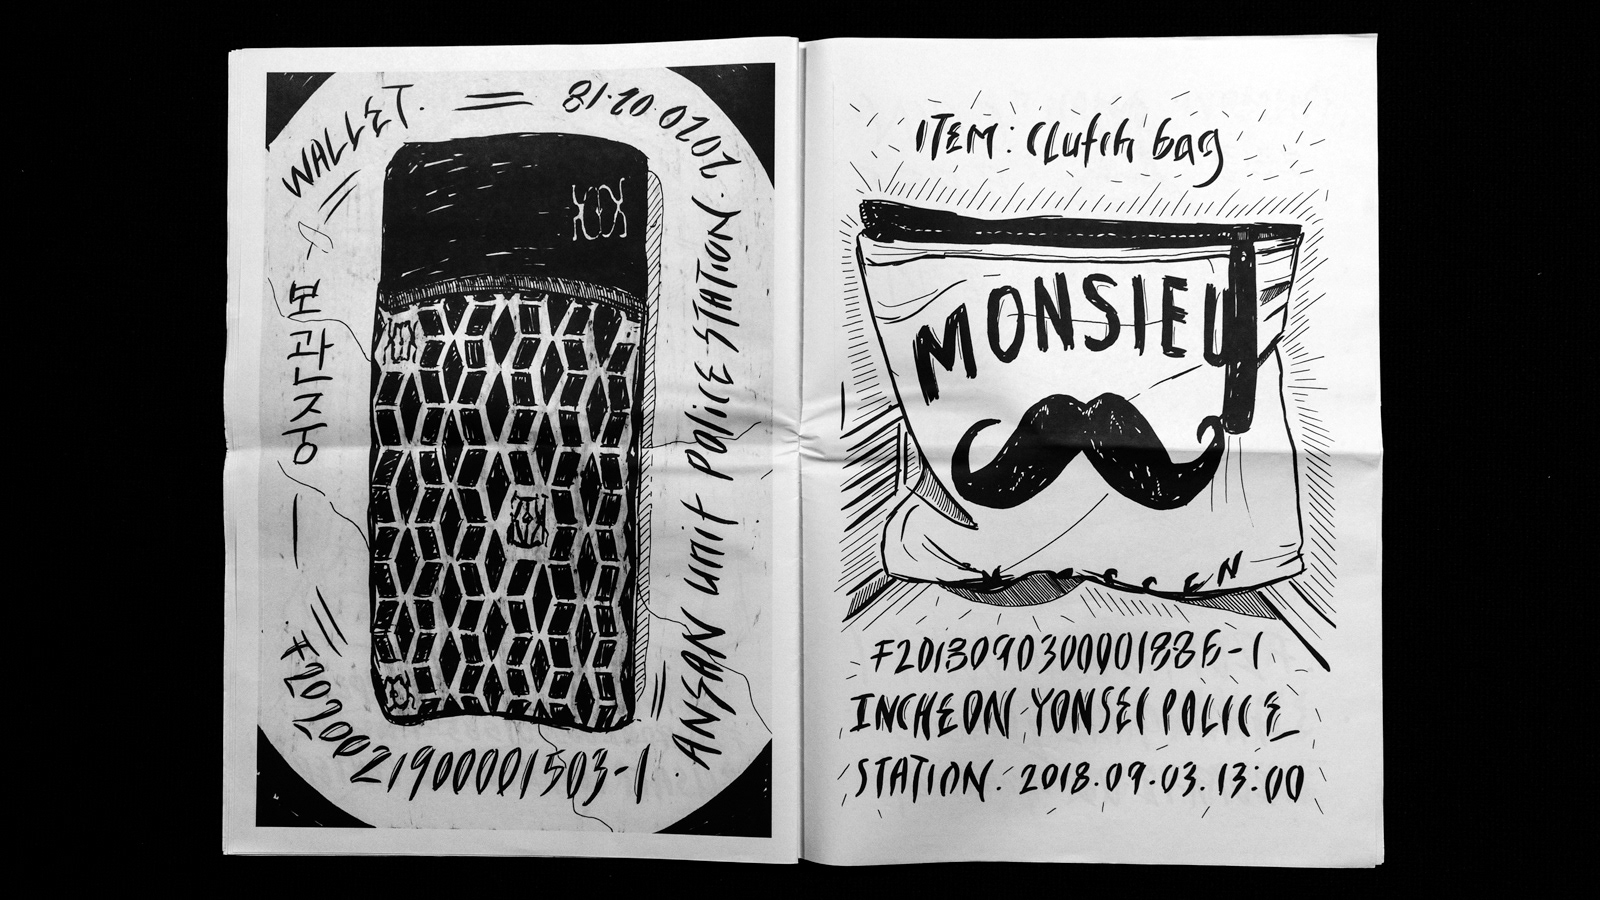 WALLET.
보관중
F2020021900001503-1.
ANSAN unit police STATION. 2020.02.18
ITEM: Clutch bag
MONSIEU
F2018090300001886-1
INCHEON YONSEI POLICE
STATION. 2018.09.03. 13:00